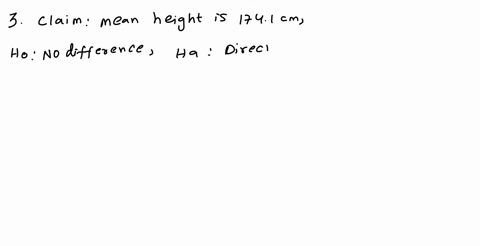 3. Claim: mean height is 174.1 cm,
Ho: No difference, Ha: Direc